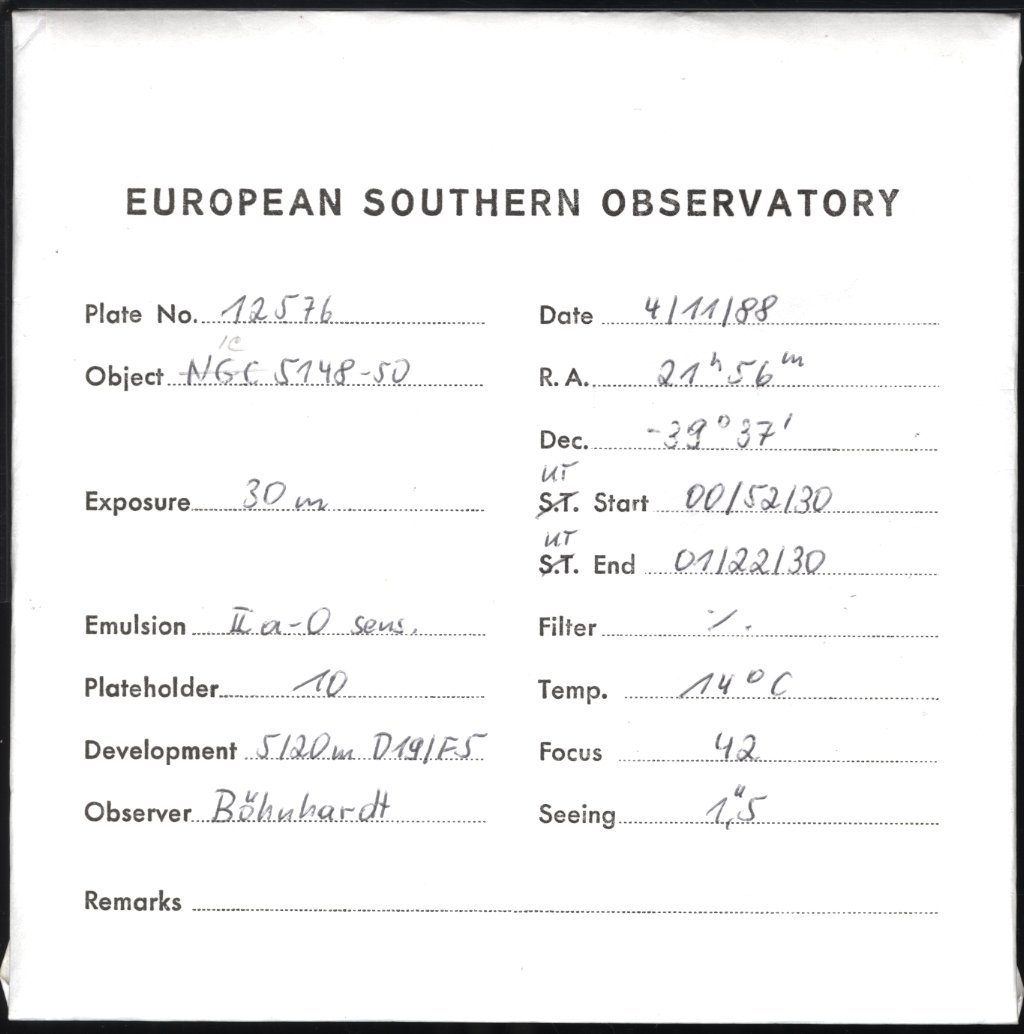 EUROPEAN SOUTHERN OBSERVATORY
Plate No. 12576
Date 4/11/88
IC
Object NGC 5148-50
R.A. 21h 56m
Dec. -39° 37'
UT
Exposure 30 m
S.T. Start 00/52/30
UT
S.T. End 01/22/30
Emulsion IIa-O sens.
Filter ./.
Plateholder 10
Temp. 14°C
Development 5/20m D19/F5
Focus 42
Observer Böhnhardt
Seeing 1",5
Remarks